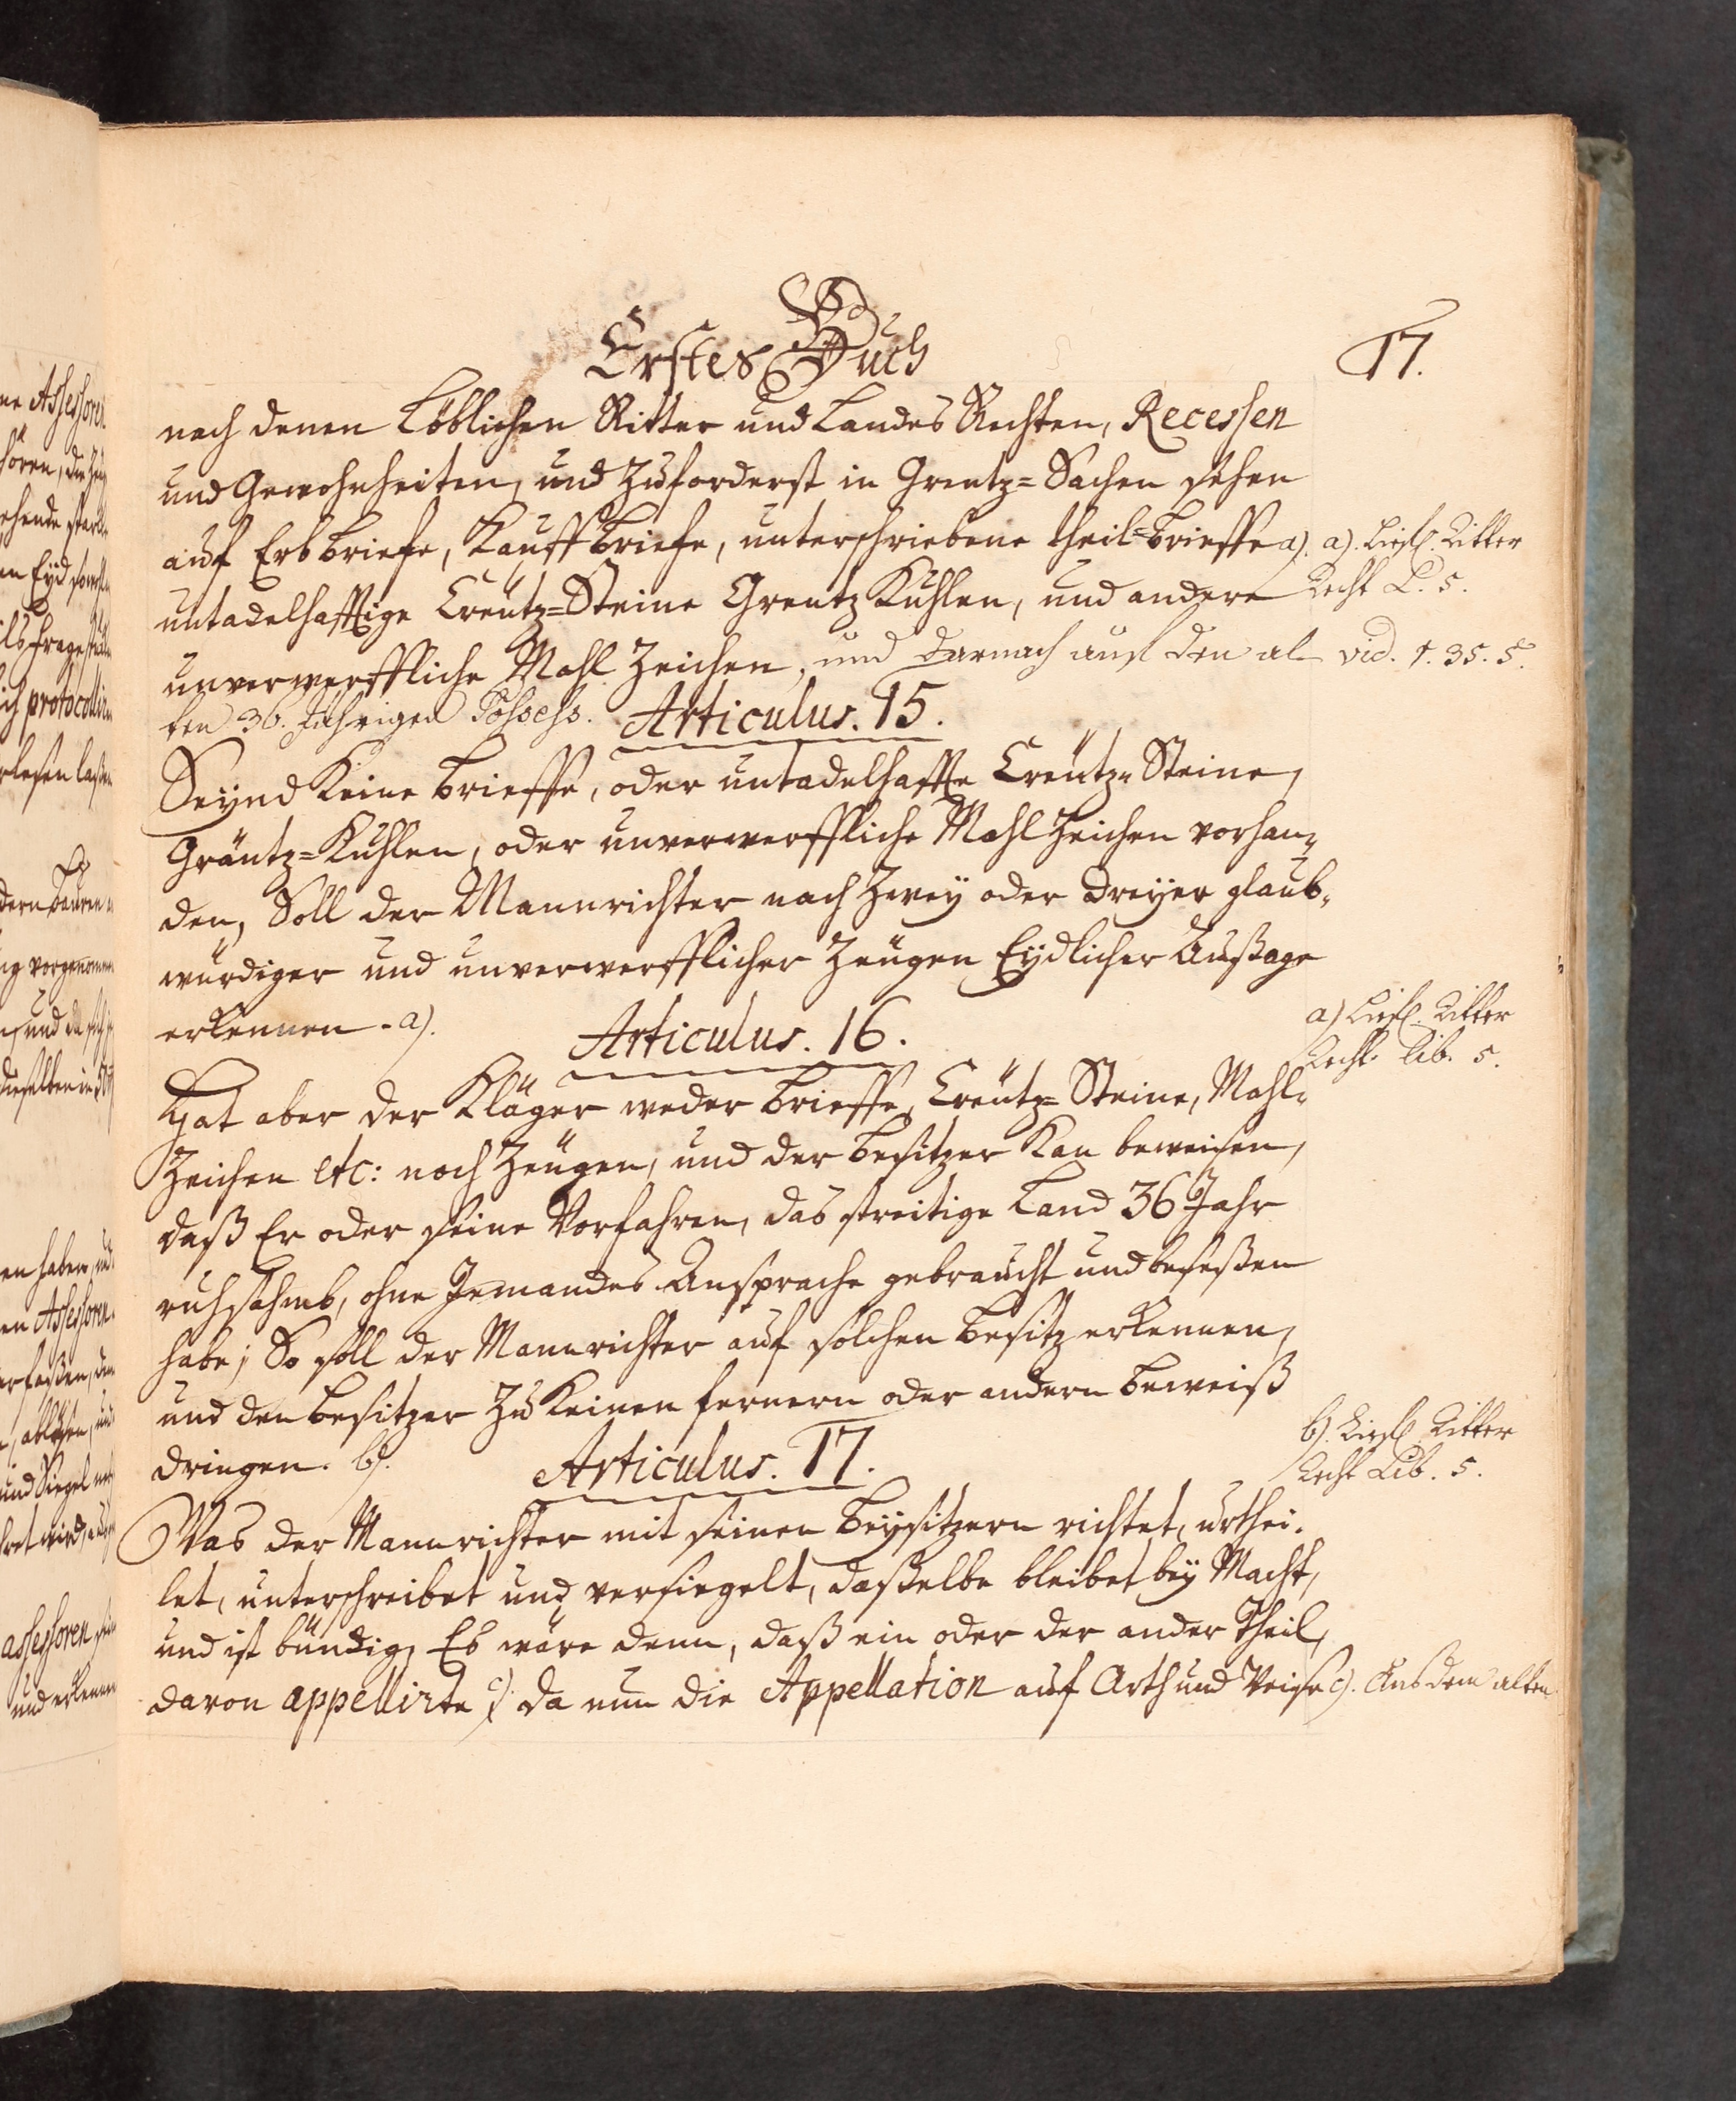 Erstes Buch
17.
nach denen Löblichen Ritter und Landes Rechten, Recessen
und Gewohnheiten, und Zuforderst in Grentz=Sachen sehen
auf Erb briefe, Kauff briefe, unterschriebene theil=brieffe a).
untadelhafftige Creutz=Steine Grentz Kuhlen, und andere
unverwerffliche Mahl Zeichen, und darnach auf den al-
ten 36. Jährigen Possess.
a). Liefl. Ritter
Recht L. 5.
vid. 1. 35. 5.
Articulus. 15.
Seynd Keine brieffe, oder untadelhaffte Creutz=Steine,
Gräntz=Kuhlen, oder unverwerffliche Mahl Zeichen vorhan=
den, Soll der Mannrichter nach Zwey oder dreyer glaub=
würdiger und unverwerfflicher Zeugen Eydlicher Außage
erkennen. a).
a) Liefl. Ritter
Recht. Lib. 5.
Articulus. 16.
Hat aber der Kläger weder brieffe, Creutz=Steine, Mahl=
Zeichen etc: noch Zeugen, und der besitzer Kan beweisen,
daß Er oder seine Vorfahren, das streitige Land 36 Jahr
ruhsahmb, ohne Jemandes Ansprache gebraucht und beseßen
habe; So soll der Mannrichter auf solchen besitz erkennen,
und den besitzer Zu Keinen fernern oder andern beweiß
dringen. b).
b). Liefl. Ritter
Recht Lib. 5.
Articulus. 17.
Was der Mannrichter mit seinen beysitzern richtet, urthei=
let, unterschreibet und versiegelt, daßelbe bleibet bey Macht,
und ist bündig, Es wäre denn, daß ein oder der ander Theil,
davon appellirte c) da nun die Appellation auf Arth und Weise
c). Aus dem alten